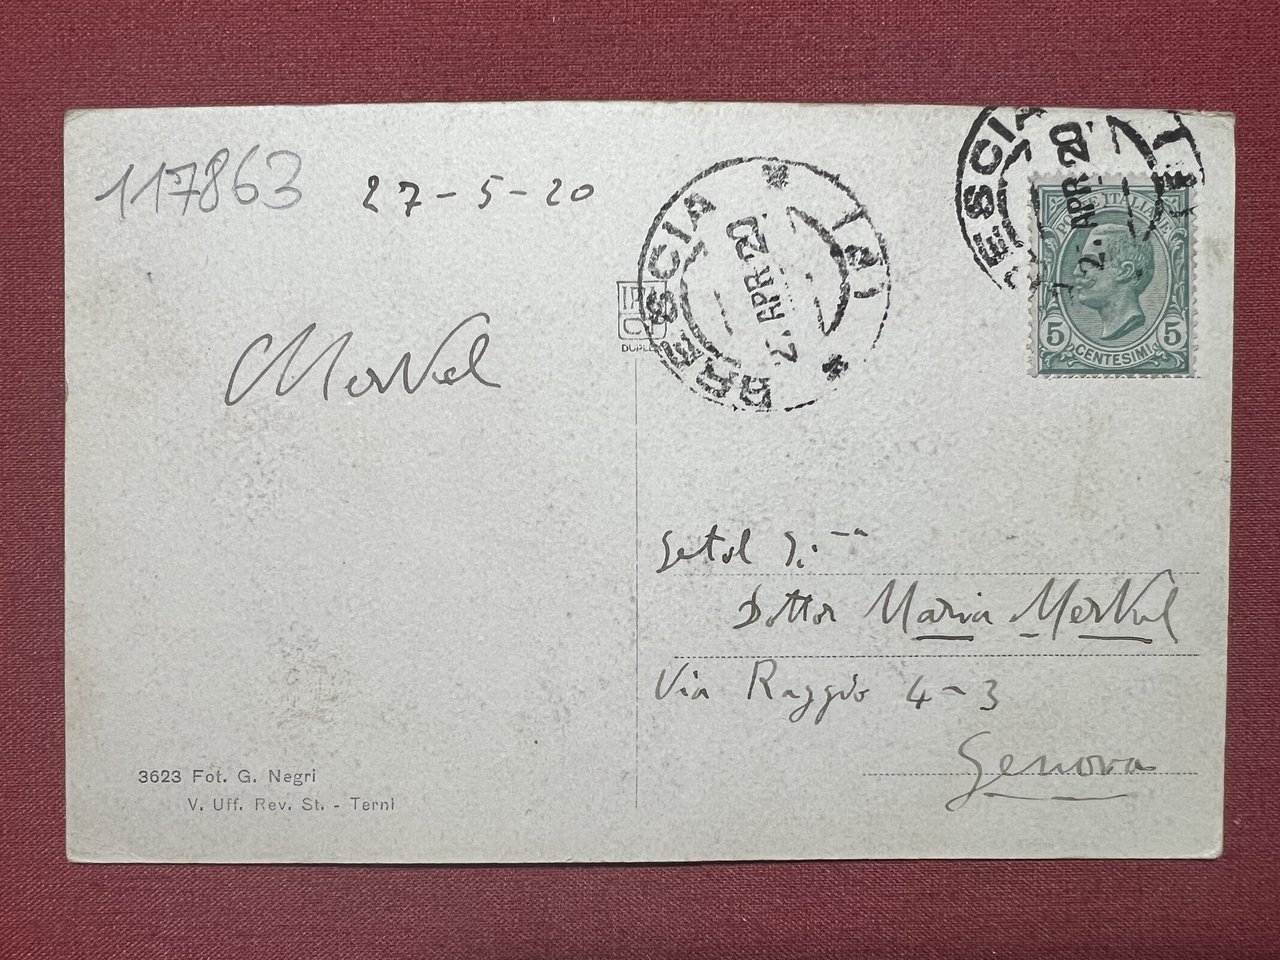 117863
27-5-20
Merkel
BRESCIA
2. APR 20
BRESCIA
2. APR 20
POSTE ITALIANE
5 5
CENTESIMI
Dottor Maria Merkel
Via Raggio 4-3
Genova
3623 Fot. G. Negri
V. Uff. Rev. St. - Terni